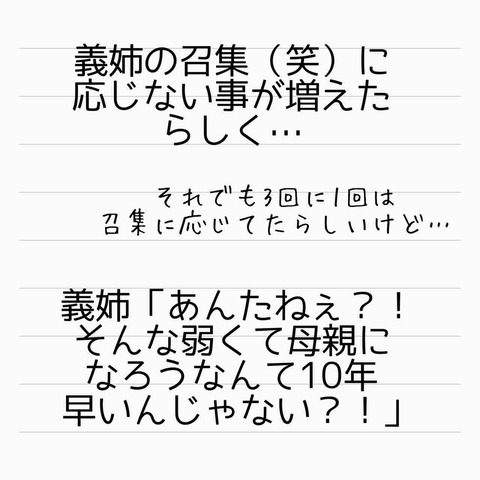 義姉の召集（笑）に
応じない事が増えた
らしく…
それでも3回に1回は
召集に応じてたらしいけど…
義姉「あんたねぇ？！
そんな弱くて母親に
なろうなんて10年
早いんじゃない？！」